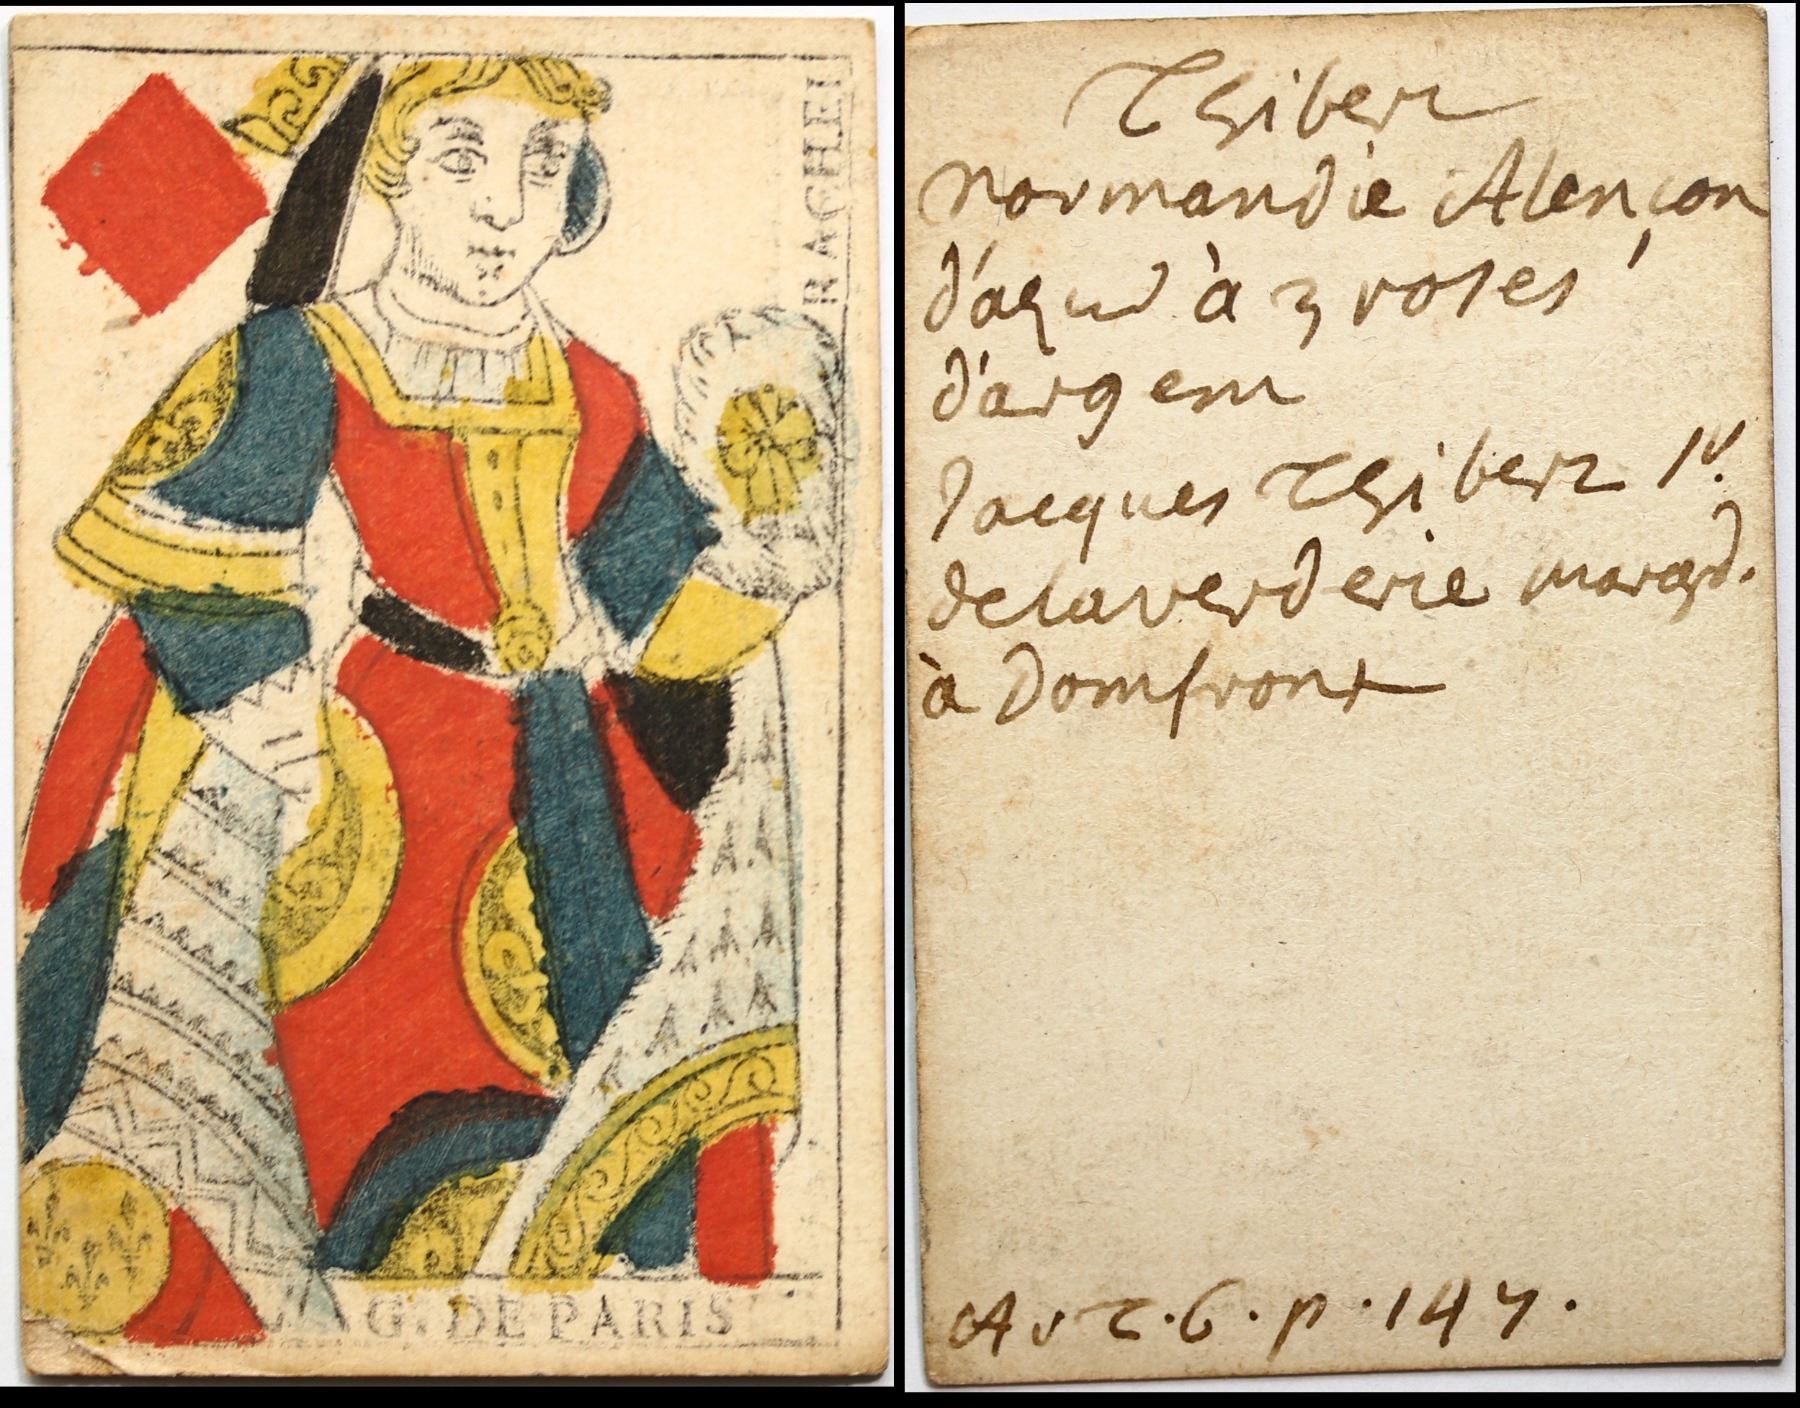 RACHEL
G. DE PARIS
Thibert
normandie Alençon
d'azur à 3 roses
d'argent
Jacques Thibert Sr.
de la verderie march d.
à Domfront
Ar T. 6. p. 147.